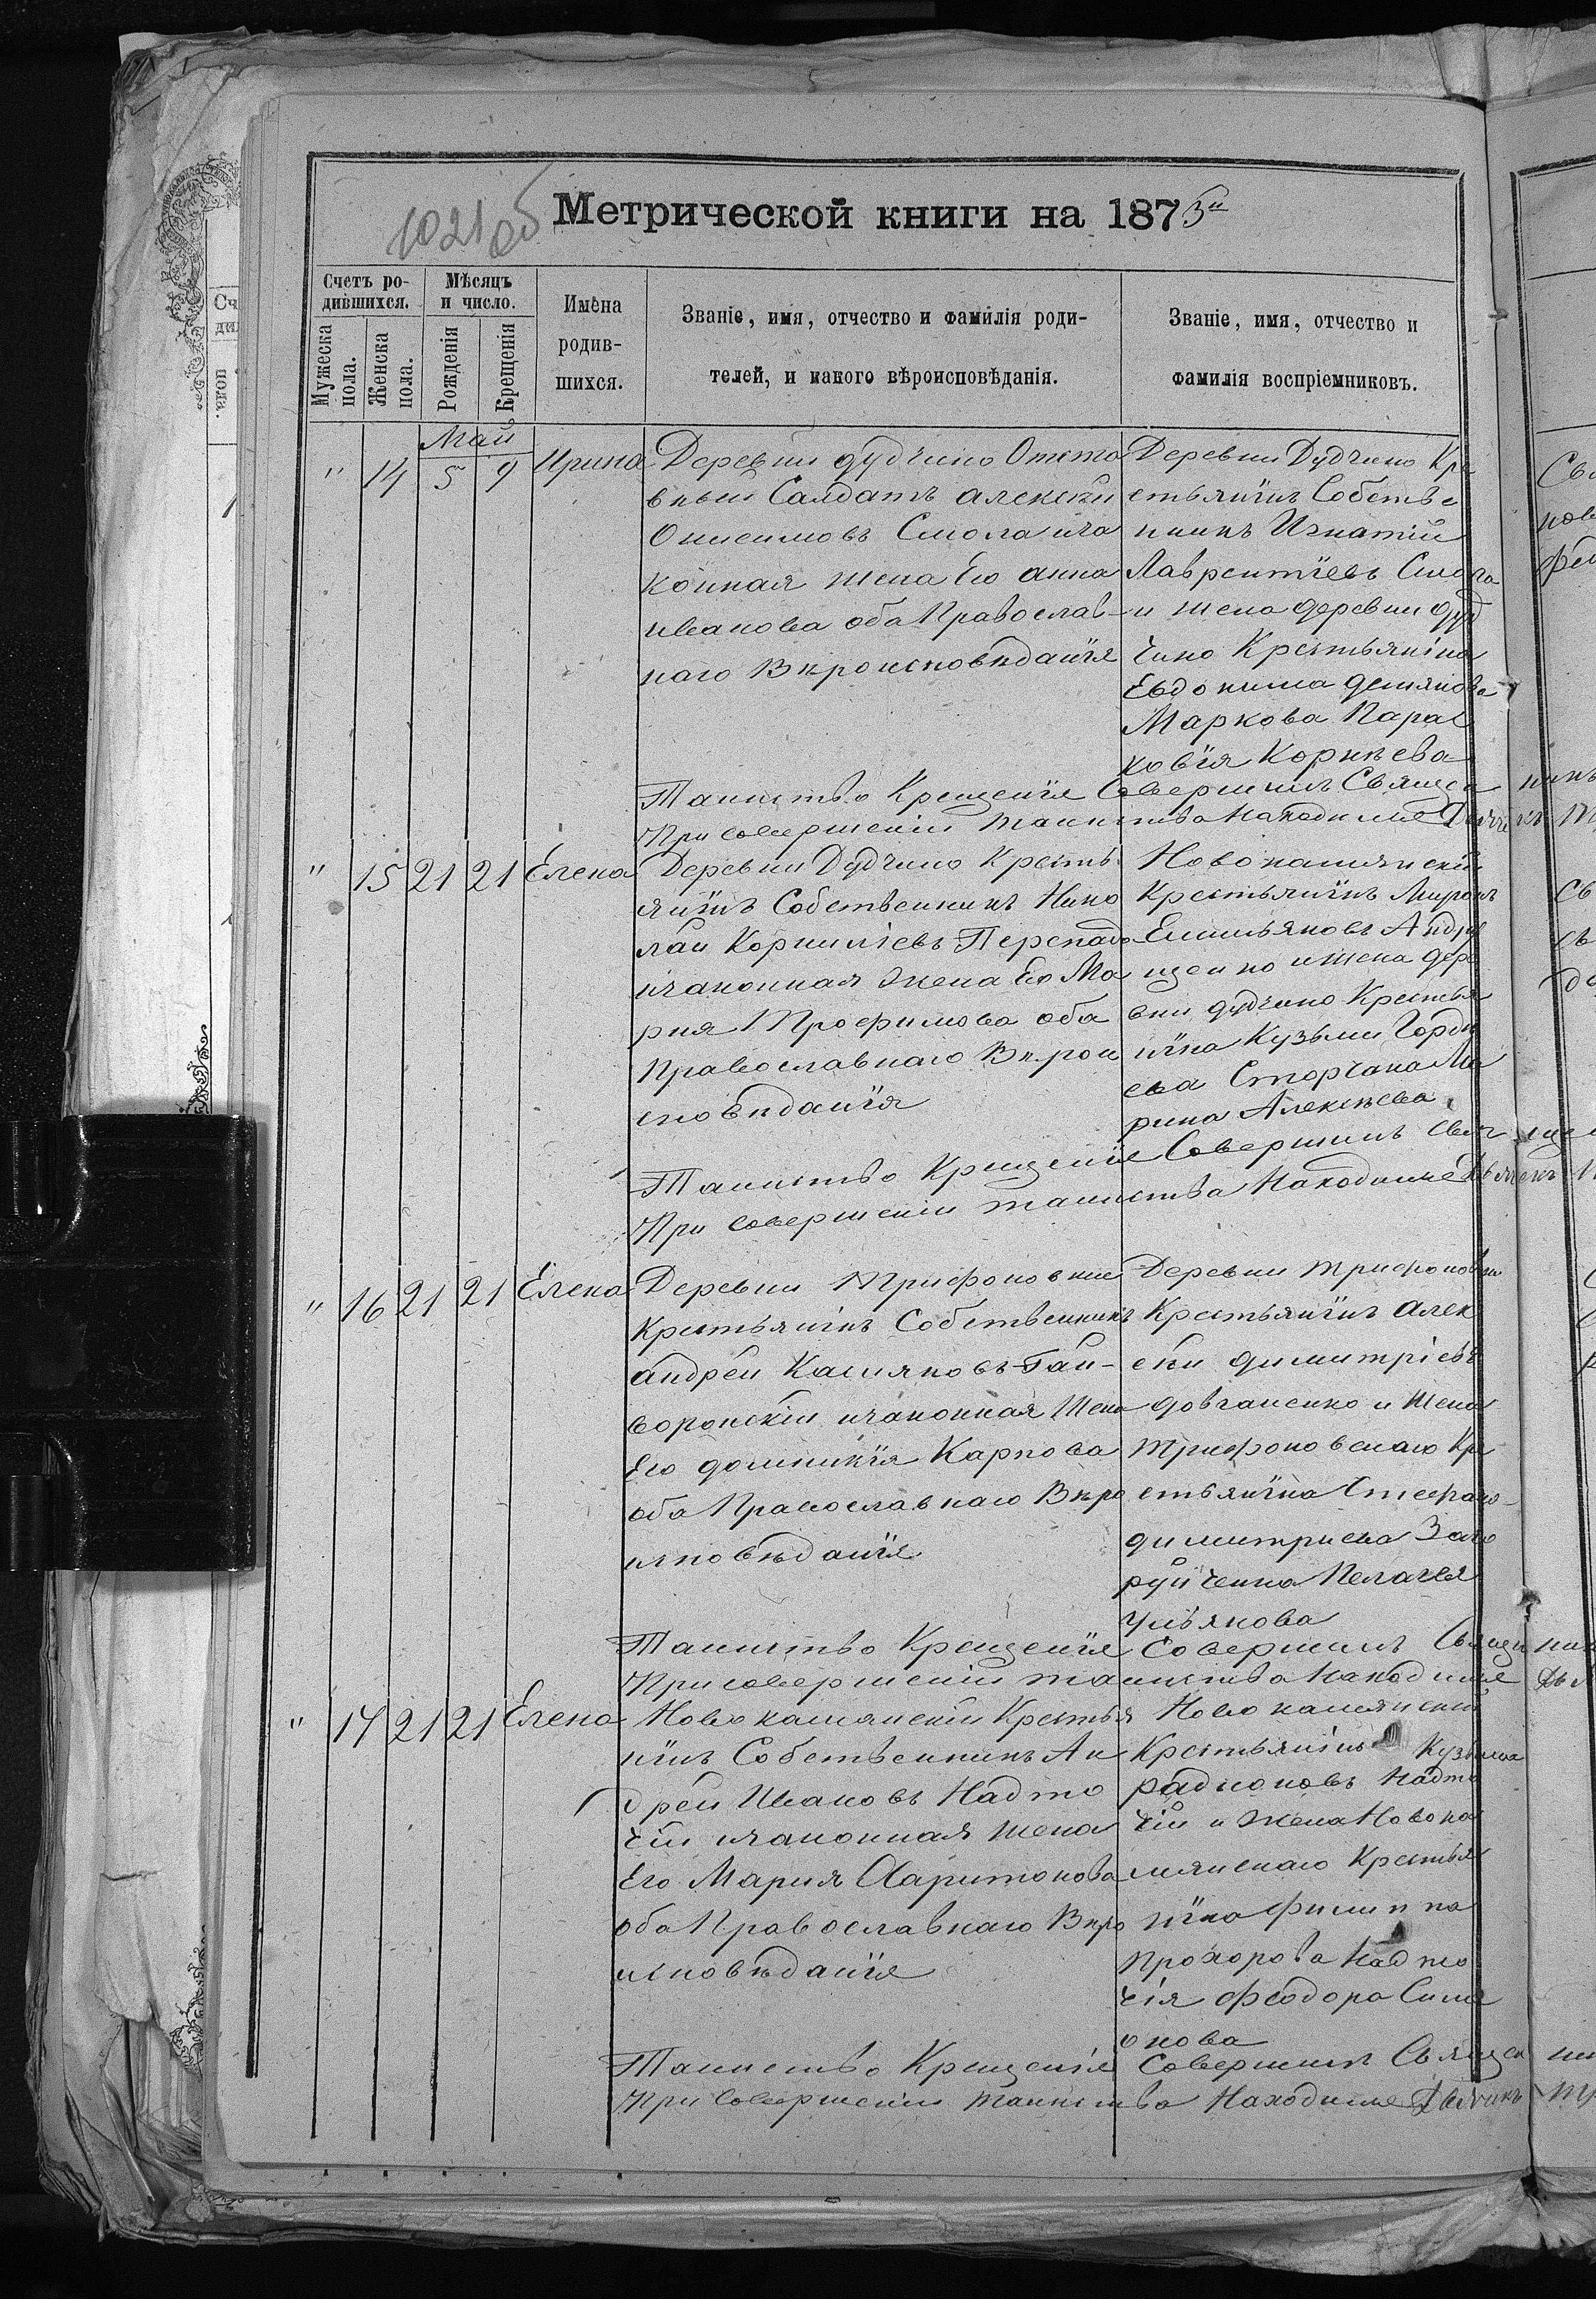 1021 об
Метрической книги на 1873й
Счетъ ро-
дившихся.
Мѣсяцъ
и число.
Имена
родив-
шихся.
Званіе, имя, отчество и фамилія роди-
телей, и какого вѣроисповѣданія.
Званіе, имя, отчество и
фамилія воспріемниковъ.
Мужеска
пола.
Женска
пола.
Рожденія
Крещенія
Май
" 14 5 9 Ирина
Деревни Дудчино Отста
вный Салдатъ Алексѣй
Онисимовъ Смола и за
конная жена Его Анна
Иванова оба Православ-
наго Вѣроисповѣданія
Деревни Дудчино Кре
стьянинъ Собстве
нникъ Игнатій
Лаврентіевъ Смола
и жена деревни Дуд
чино Крестьянина
Евдокима Демянова
Маркова Парас
ковія Корнѣева
Таинство Крещенія Совершилъ Священ
При совершеніи таинства Находился Дьячекъ
" 15 21 21 Елена
Деревни Дудчино Кресть
янинъ Собственникъ Нико
лай Корниліевъ
и законная жена Его Ма
рия Трофимова оба
Православнаго Вѣрои
сповѣданія
Новокамянскій
Крестьянинъ Миронъ
Емильяновъ Андру
щенко и жена дере
вни Дудчино Крестья
нина Кузьмы Горди
ева Сторчака Ма
рина Алексѣева
Таинство Крещенія Совершилъ Свящ
При совершеніи таинства Находился Дьячекъ
" 16 21 21 Елена
Деревни Трифоновки
Крестьянинъ Собственникъ
Андрей Касияновъ Гай-
воронскій и законная Жена
Его Домникія Карпова
оба Православнаго Вѣро
исповѣданія
Деревни Трифоновки
Крестьянинъ Алек
сѣй Димитріевъ
Довганенко и Жена
Трифоновскаго Кре
стьянина Стефана
Димитриева Заго
руйченка Пелагея
Ульянова
Таинство Крещенія Совершилъ Священ
При совершеніи таинства находился
" 17 21 21 Елена
Новокамянскій Крестья
нинъ Собственникъ Ан
дрей Ивановъ Надто
чій и законная жена
Его Мария Харитонова
оба Православнаго Вѣро
исповѣданія
Новокамянскій
Крестьянинъ Кузьма
Радионовъ Надто
чій и жена Новока
мянскаго Крестья
нина Филиппа
Прохорова Надто
чія Феодора Симе
онова
Таинство Крещенія Совершилъ Священ
При Совершеніи таинства Находился Дьячикъ